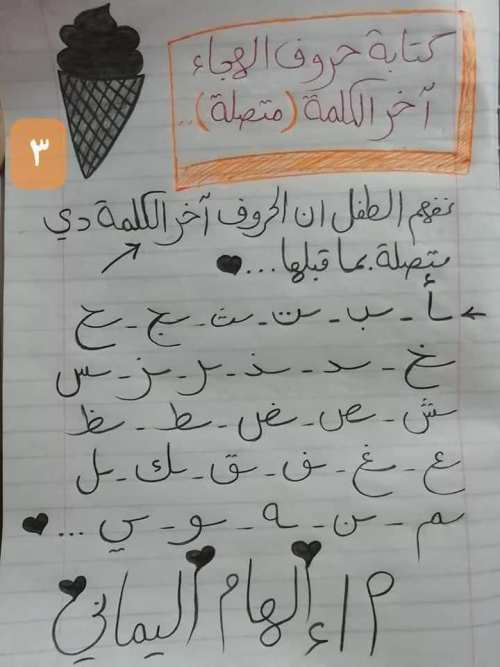 كتابة حروف الهجاء
آخر الكلمة (متصلة)..
٣
نفهم الطفل ان الحروف آخر الكلمة دي
متصلة بما قبلها...
ـأ - ـب - ـت - ـث - ـج - ـح
ـخ - ـد - ـذ - ـر - ـز - ـس
ـش - ـص - ـض - ـط - ـظ
ـع - ـغ - ـف - ـق - ـك - ـل
ـم - ـن - ـه - ـو - ـي ...
م / إلهام اليماني